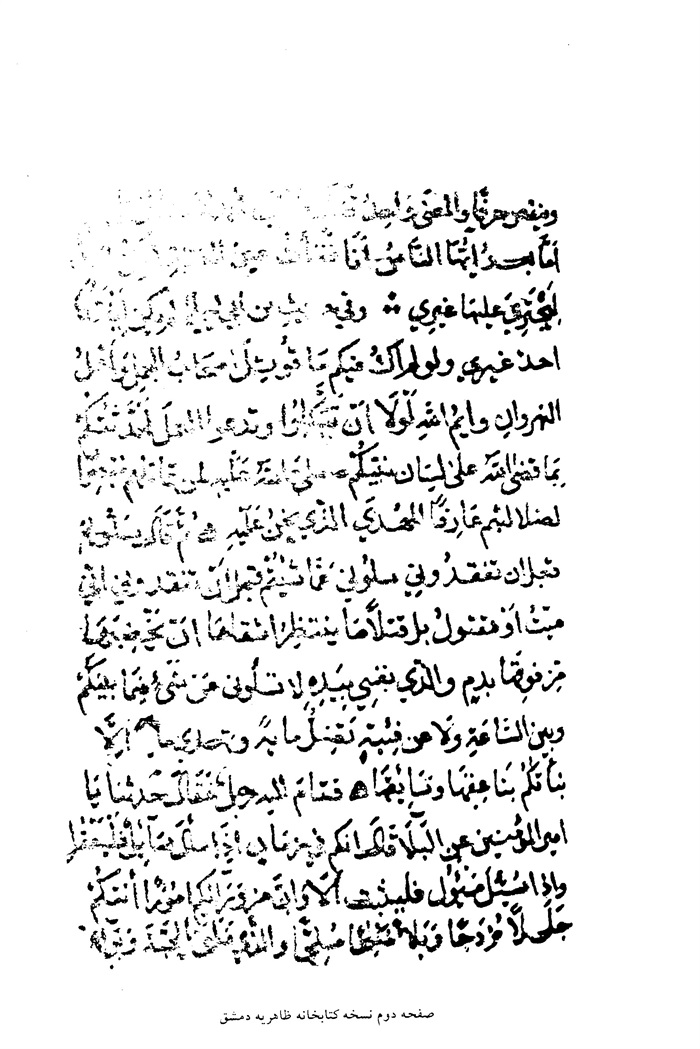 وينقص حرفا والمعنى واحد
أما بعد أيها الناس أنا فقأت عين
ليجترئ عليها غيري وفي حديث ابن أبي ليلى لم يكن
احد غيري ولو لم أك فيكم ما قوتل أصحاب الجمل وأهل
النهروان وايم الله لولا أن تتكلوا وتدعوا العمل لحدثتكم
بما قضى الله على لسان نبيكم صلى الله عليه لمن قاتلهم مبصرا
لضلالتهم عارفا للهدى الذي نحن عليه ثم قال سلوني
قبل ان تفقدوني سلوني عما شئتم قبل أن تفقدوني اني
ميت أو مقتول بل قتلا ما ينتظر اشقاها ان يخضبها
من فوقها بدم والذي نفسي بيده لا تسلوني عن شيء فيما بينكم
وبين الساعة ولا عن فئة تضل مائة وتهدي مائة إلا
نبأتكم بناعقها وسائقها فقام إليه رجل فقال حدثنا يا
امير المؤمنين عن البلاء قال انكم في زمان إذا سأل سائل فليعقل
وإذا سئل مسئول فليثبت ألا وان من ورائكم أمورا أتتكم
جللا مزوجا وبلاء مكلحا والذي فلق الحبة وبرأ
صفحه دوم نسخه کتابخانه ظاهریه دمشق